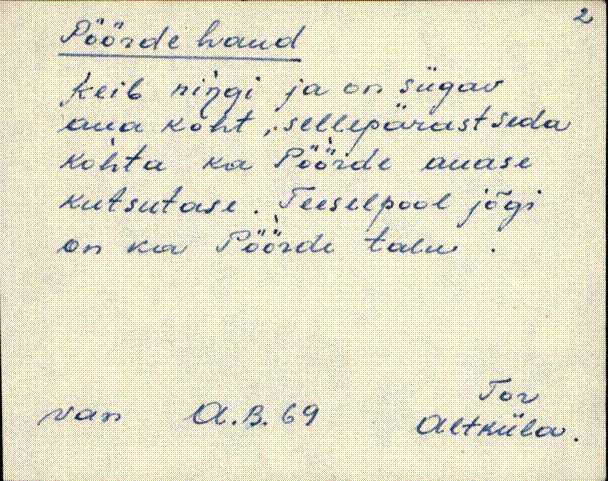 2
Pöörde haud
Keib ringi ja on sügav
aua koht, sellepärast seda
kohta ka Pöörde auase
kutsutase. Teeselpool jõgi
on ka Pöörde talu.
van A.B. 69
Tor
Altküla.